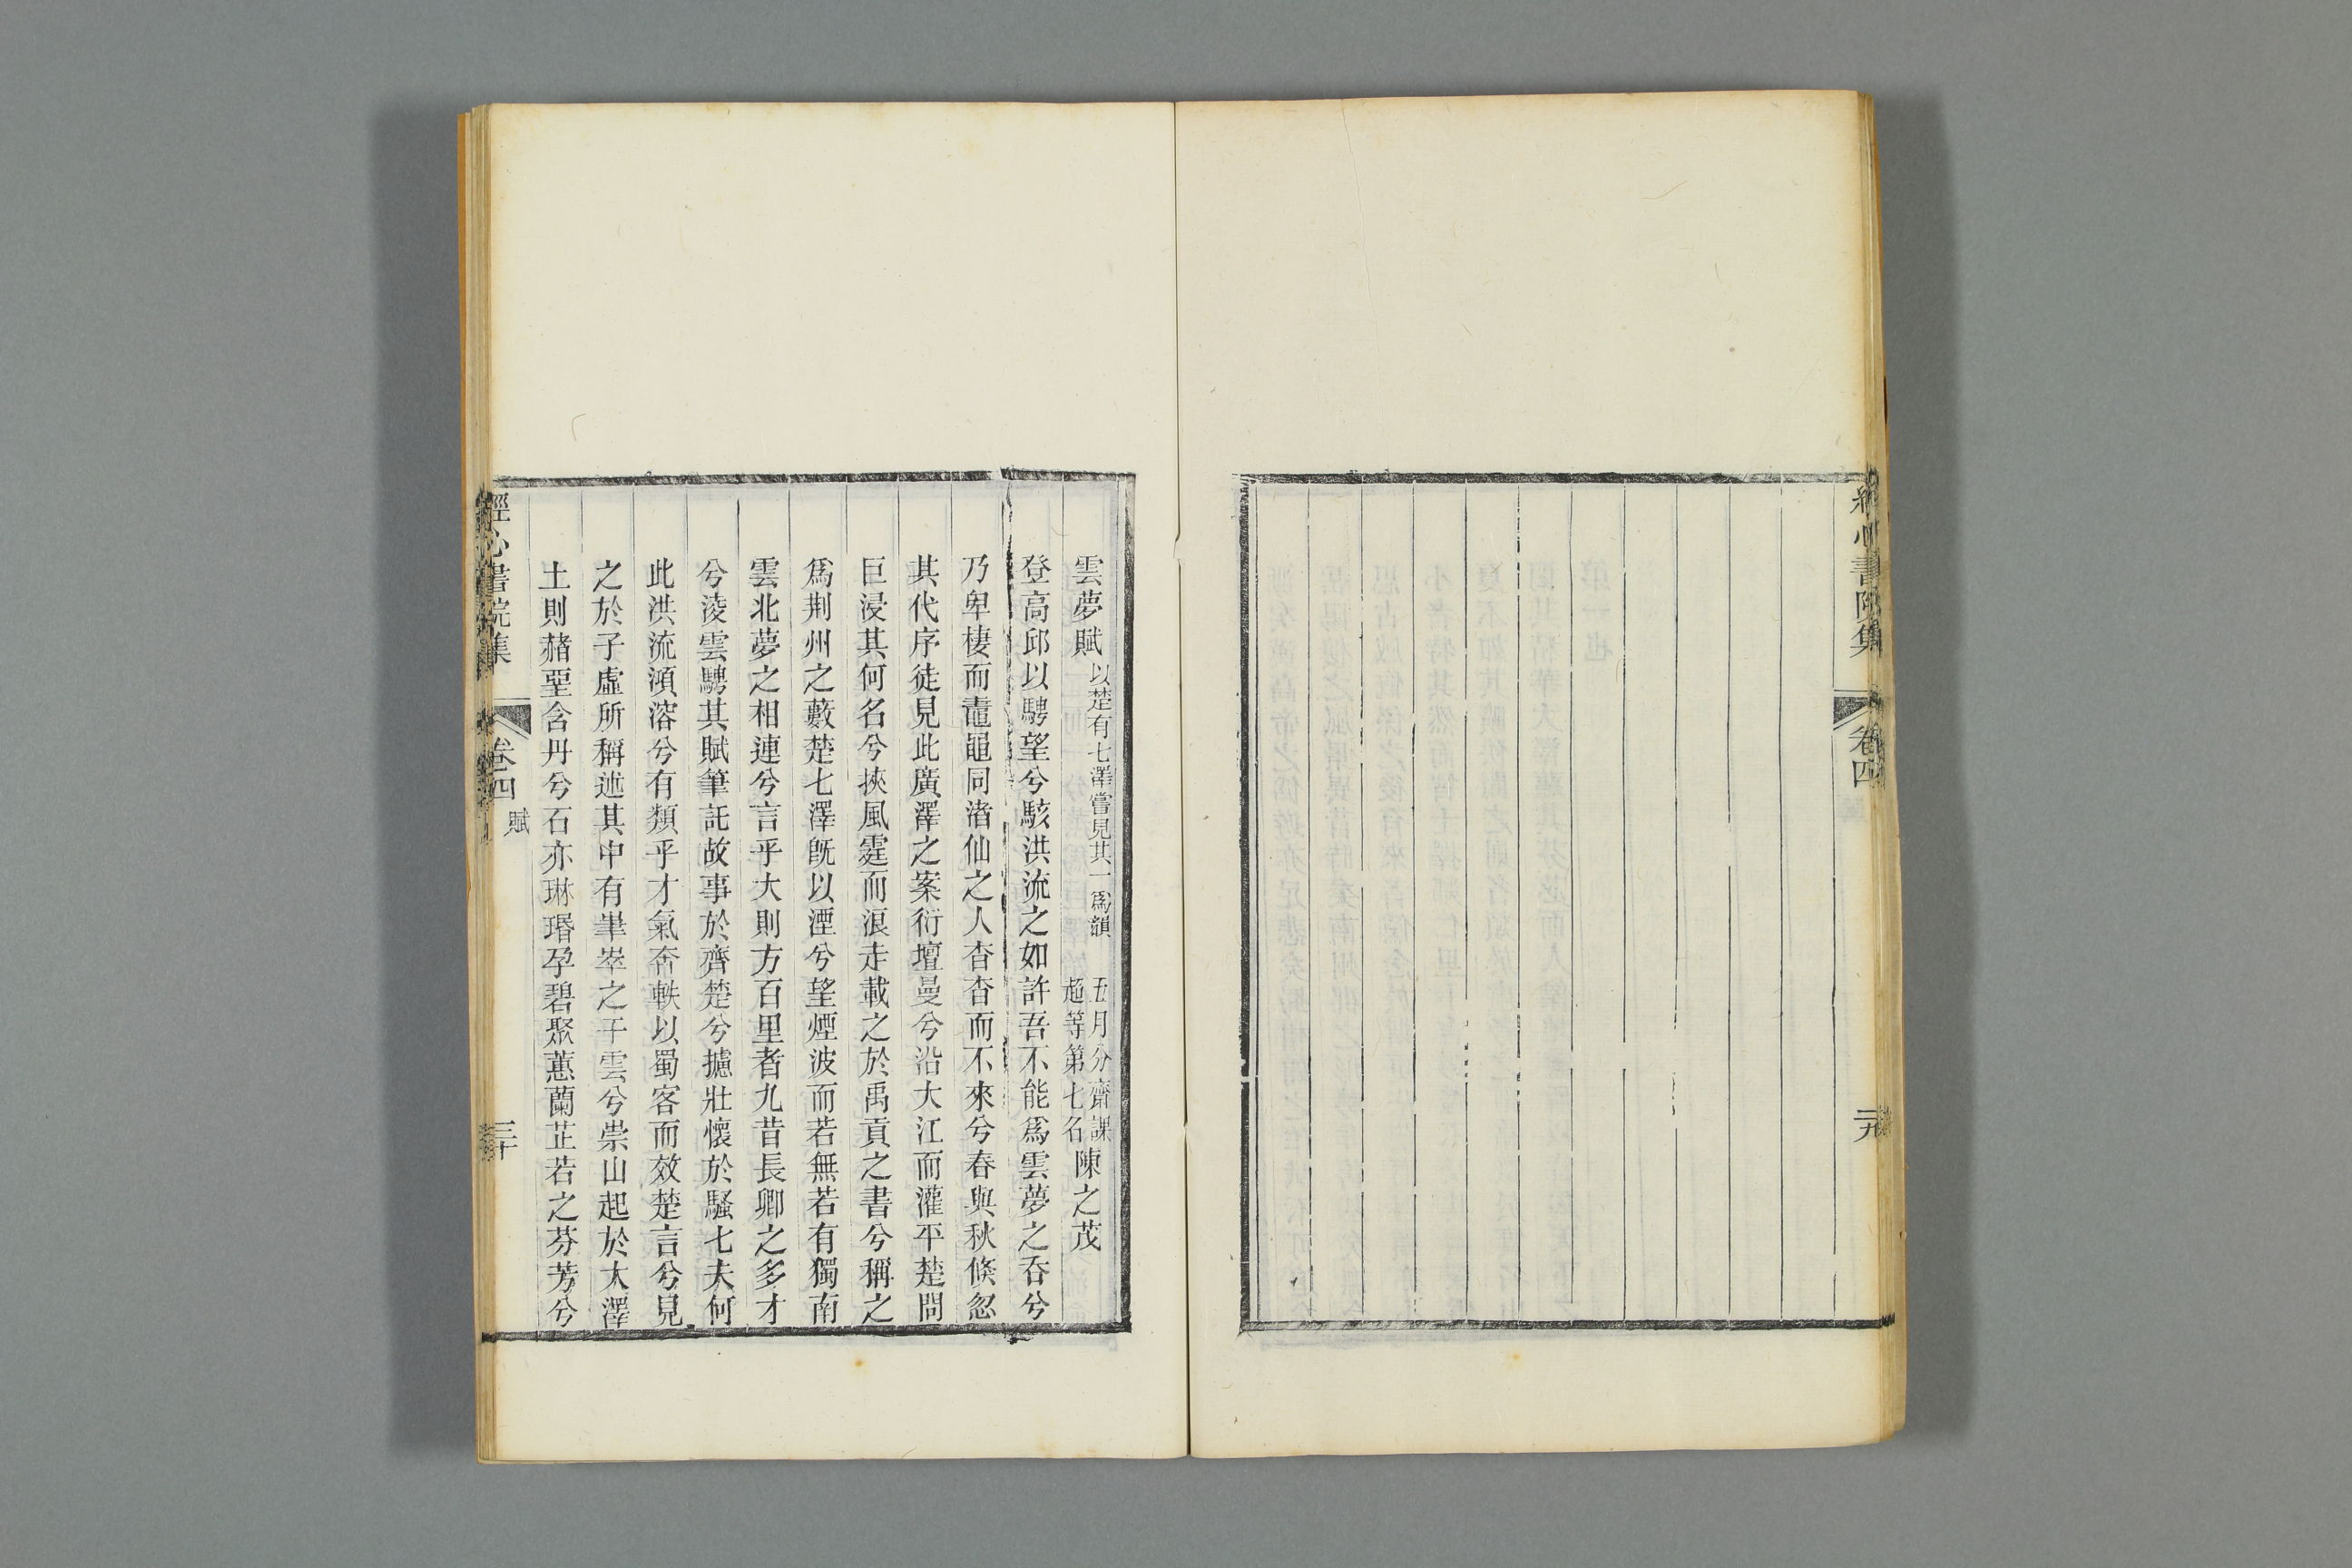 經心書院集
卷四
二九
雲夢賦以楚有七澤嘗見其一爲韻
五月分齋課
超等第七名
陳之茂
登高邱以騁望兮駭洪流之如許吾不能爲雲夢之吞兮
乃卑棲而鼃黽同渚仙之人杳杳而不來兮春與秋倏忽
其代序徒見此廣澤之案衍壇曼兮沿大江而灌平楚問
巨浸其何名兮挾風霆而浪走載之於禹貢之書兮稱之
爲荆州之藪楚七澤旣以湮兮望煙波而若無若有獨南
雲北夢之相連兮言乎大則方百里者九昔長卿之多才
兮淩雲騁其賦筆託故事於齊楚兮攄壯懷於騷七夫何
此洪流澒溶兮有類乎才氣奔軼以蜀客而效楚言兮見
之於子虛所稱述其中有崒崒之干雲兮崇山起於大澤
土則赭堊含丹兮石亦琳瑉孕碧聚蕙蘭芷若之芬芳兮
經心書院集
卷四
賦
三十